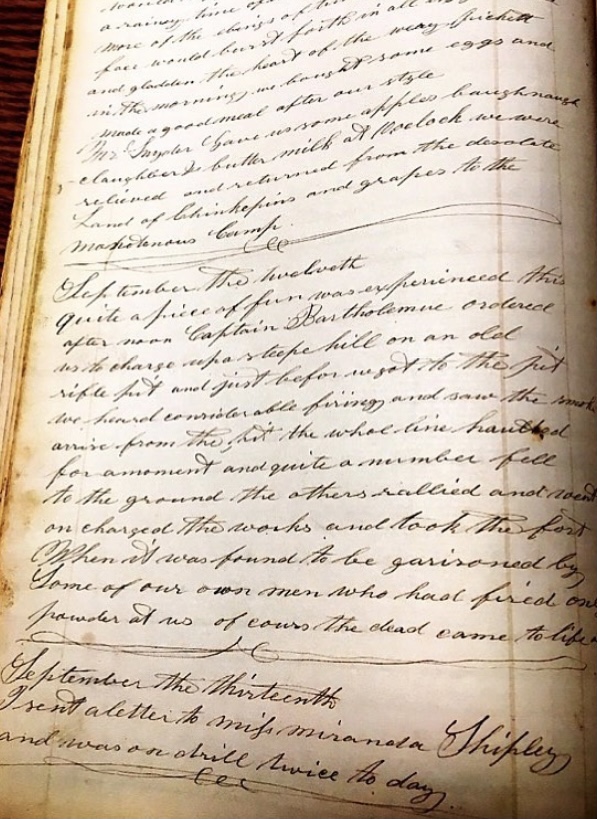 a rainy time
more of the
face would burst forth in all
and gladden the heart of the weary pickett
in the morning we bought some eggs and
made a good meal after our style
Mrs Snyder gave us some apples
& butter milk at were
relieved and returned from the desolate
Land of Chinkepins and grapes to the
Camp
September the twelveth
quite a piece of fun was experienced this
after noon Captain Bartholemue ordered
us to charge up a steepe hill on an old
rifle pit and just befor we got to the pit
we heard considerable firing and saw the
arrise from the pit the whole line
for a moment and quite a number fell
to the ground the others rallied and went
on charged the works and took the fort
When it was found to be garisoned by
Some of our own men who had fired
powder at us of cours the dead came to life
September the thirteenth
I sent a letter to miss miranda Shipley
and was on drill twice to day